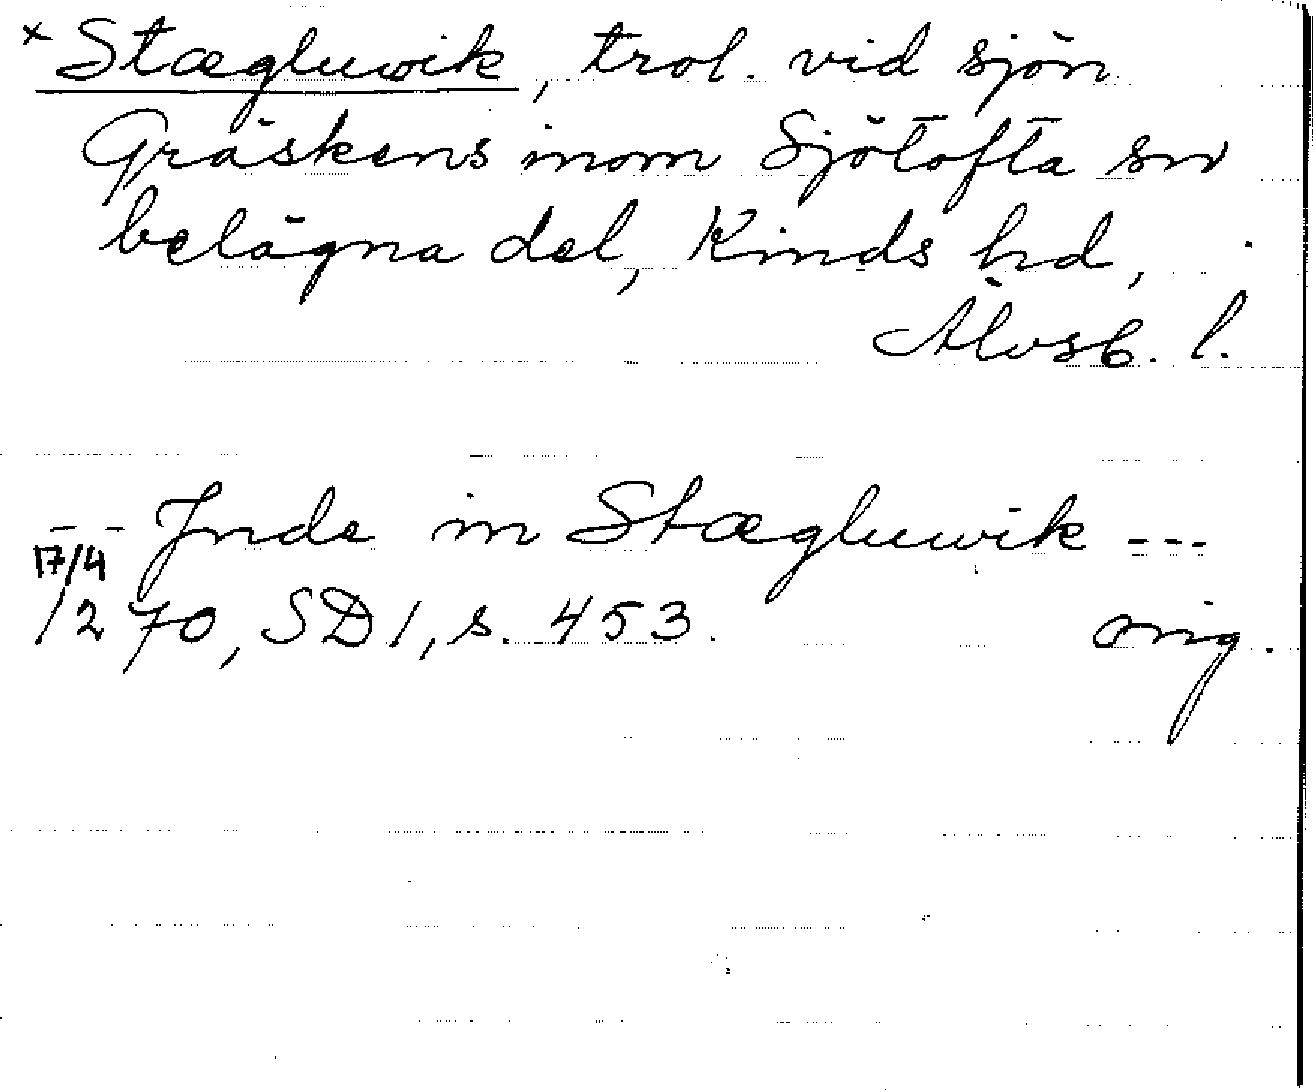 × Stægluwik, trol. vid sjön
Gräskens inom Sjötofta sn
belägna del, Kinds hd,
Älvsb. l.
--- Jnde in Stægluwik ---
17/4
1270, SD 1, s. 453. orig.